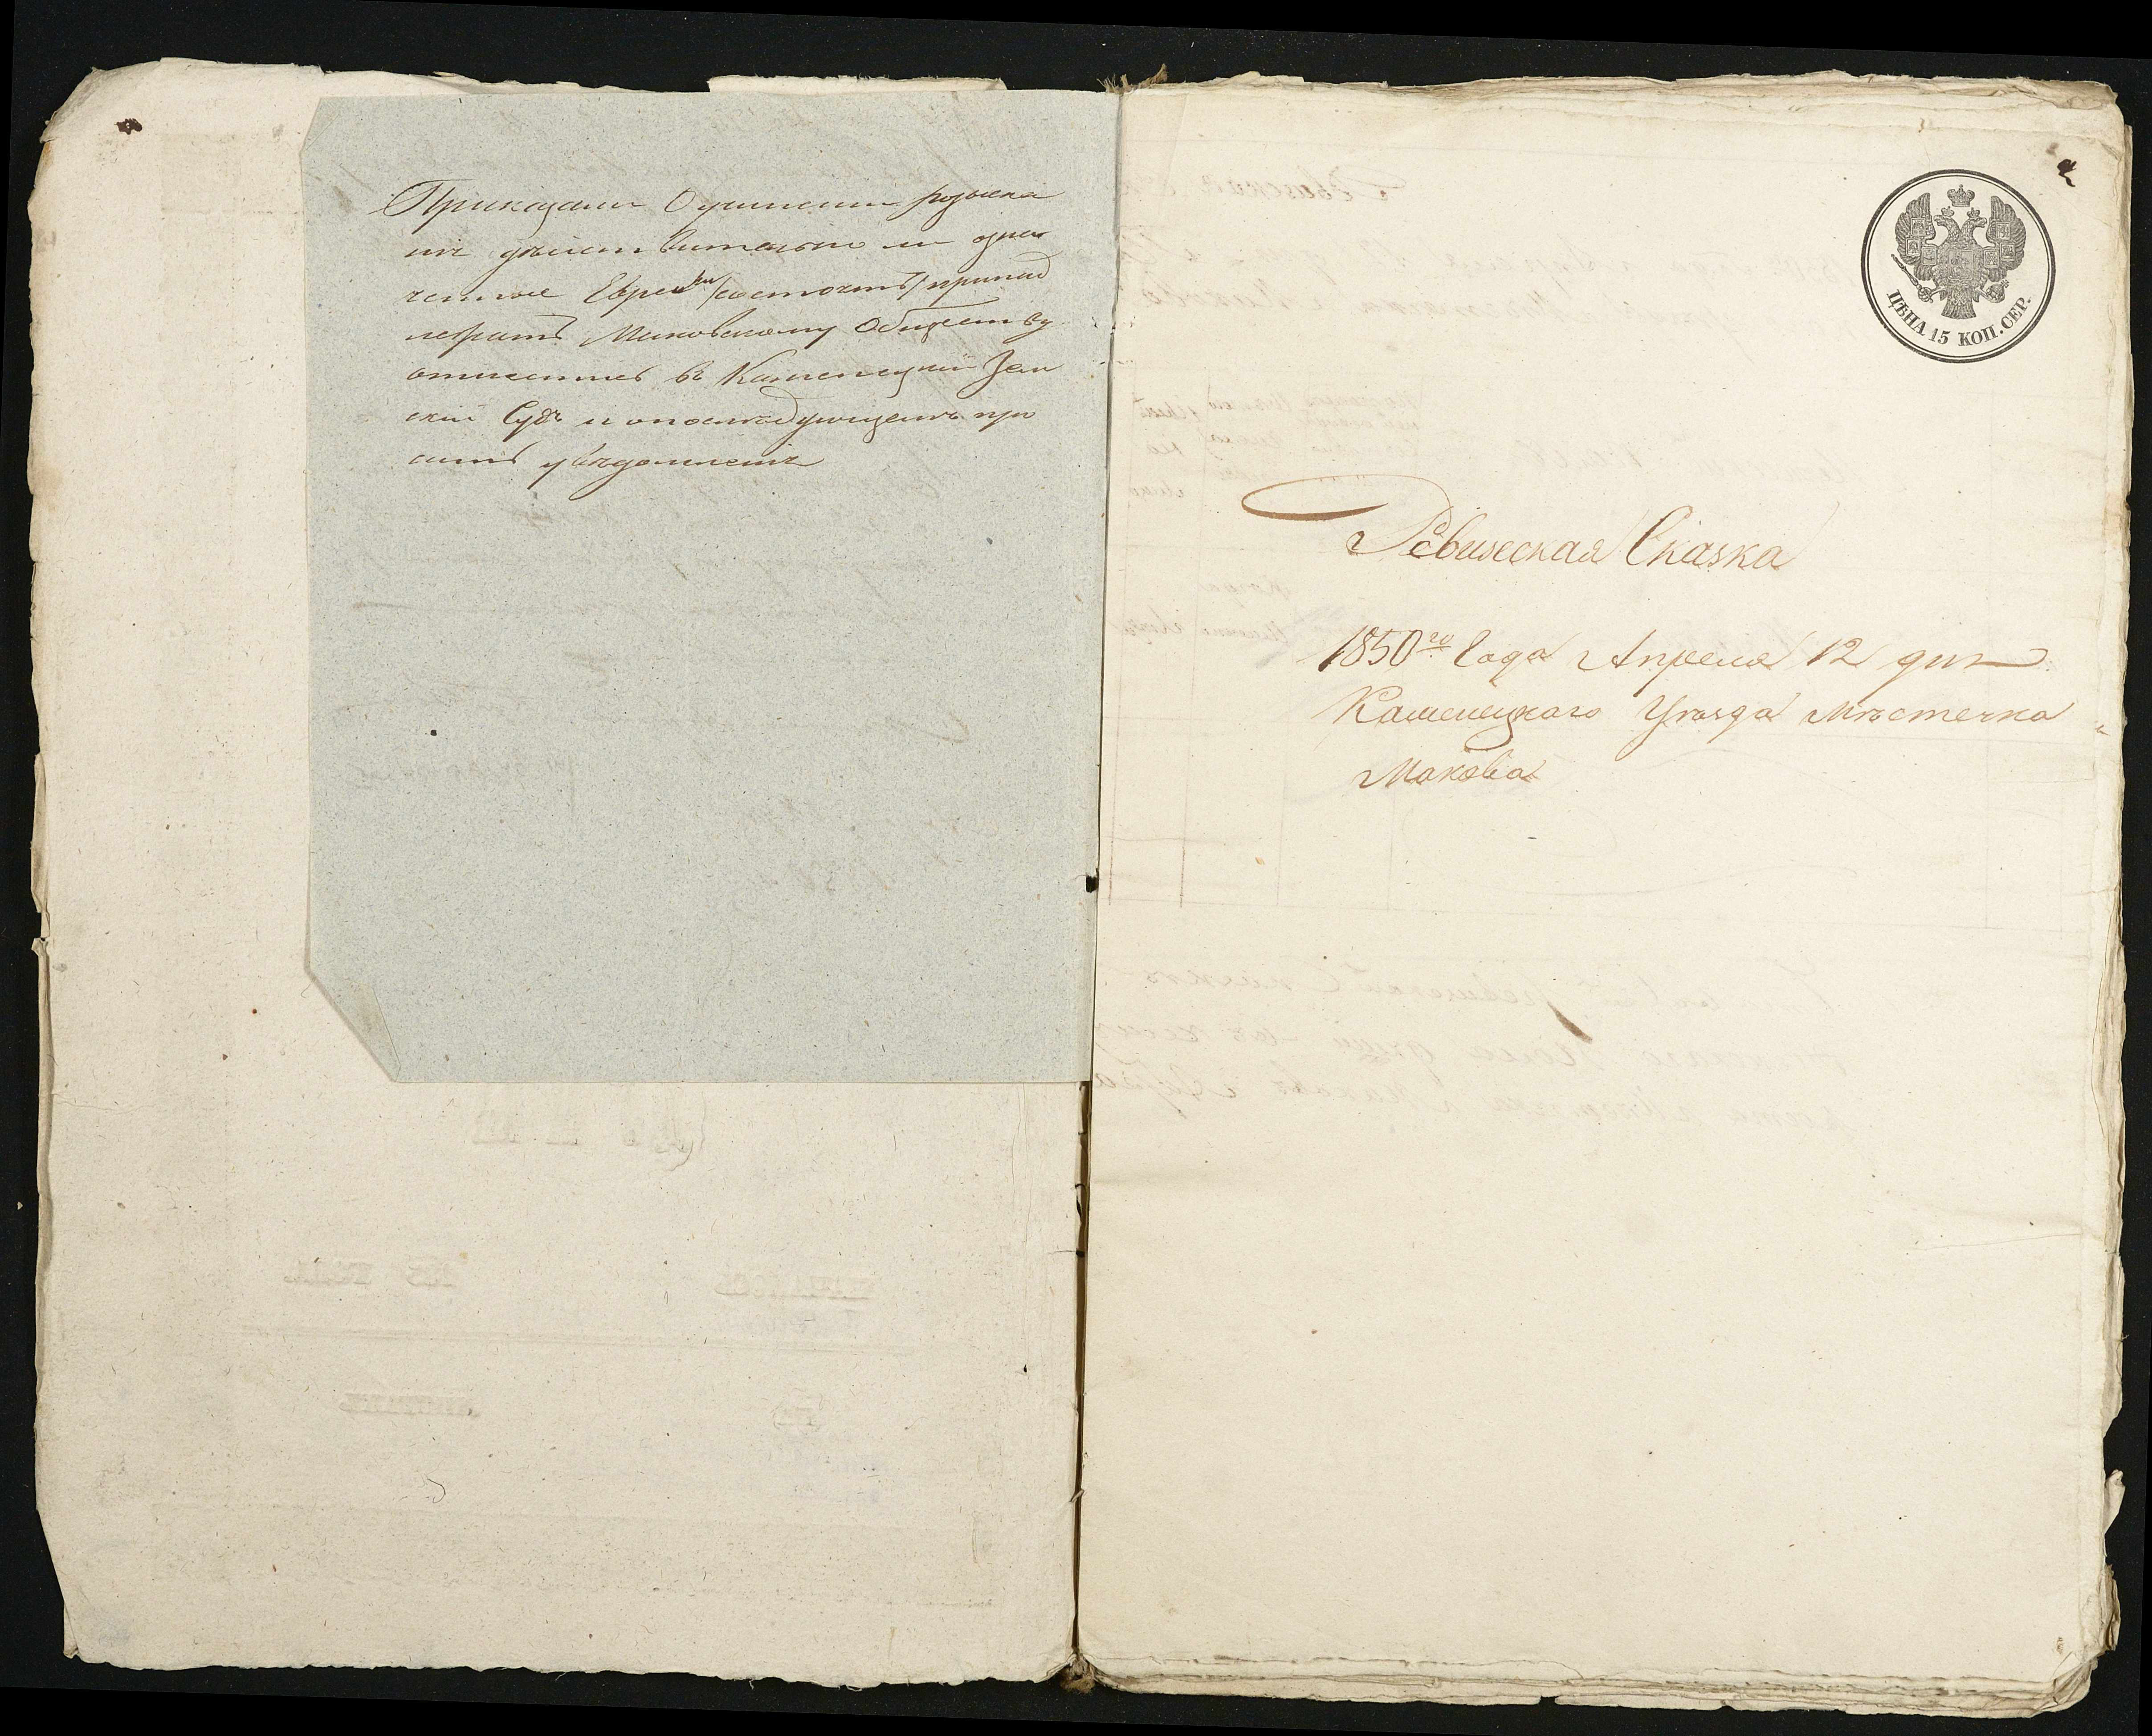 Приказали О учинении розыска
ніи действительно ли озна
ченные Евреи состоятъ принад
лежатъ Маковскому Обществу
отнестись въ Каменецкій Зем
скій Судъ и о послѣдующемъ про
сить увѣдомленія
ЦѢНА 15 КОП. СЕР.
Ревизская Сказка
1850го Года Апреля 12 дня
Каменецкаго Уѣзда Мѣстечка
Макова